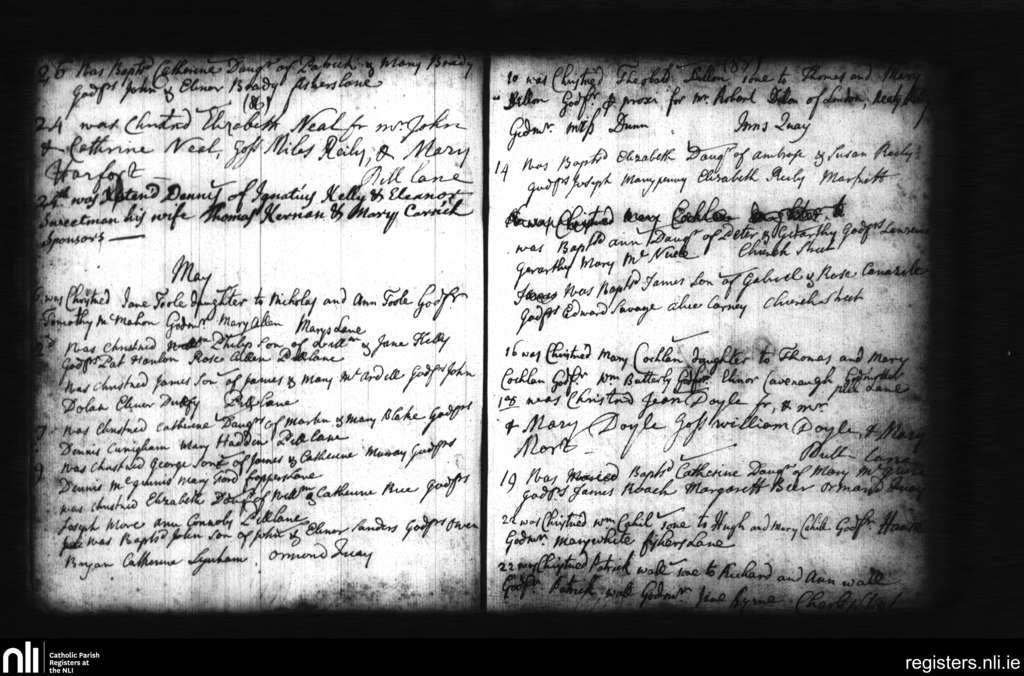 26 Was Baptsd Catherine Daugr of Patrick & Mary Brady
Godfs John & Elinor Brady Fishers lane
(86)
24 was Christnd Elizabeth Neal fr mr John
& Cathrine Neal, Goss Miles Reily, & Mary
Harford Pill lane
24th was Xstend Dennis of Ignatius Kelly & Eleanor
Sweetman his wife Thomas Kernan & Mary Carrick
Sponsors
May
was Christned Jane Toole daughter to Nicholas and Ann Toole Godfr
Timothy Mc Mahon Godmr Mary Allen Marys Lane
Was Christned Philip Son of Willm & Jane Kelly
Godfs Pat Hanlon Rose Allen Pill lane
Was christned James Son of James & Mary Mc Ardell Godfs John
Dolan Elinor Duffy Pill lane
7 Was Christned Catherine Daugr of Martin & Mary Blake Godfs
Dennis Cunigham Mary Hadden Pill Lane
9 Was christned George Son of James & Catherine Murray Godfs
Dennis Mc guinis Mary Ford Lane
was christned Elizabeth Daugr of Willm & Catherine Rice Godfs
Joseph More Ann Connoly Pill lane
was Baptsd John son of John & Elinor Sanders Godfs Owen
Bryan Catherine Lynham Ormond Quay
(87)
10 was Christned Theobald Dillon sone to Thomas and Mary
Dillon Godfr proxi for mr Robert Dillon of London,
Godmr Dunn Inns Quay
14 Was Baptsd Elizabeth Daugr of Ambrose & Susan Reily
Godfs Joseph Elizabeth Reily
was Christned Mary Cochlan daughter to
was Baptsd Ann Daugr of Peter & Gerarthy Godfs Lawrence
Gerarthy Mary Mc Church Street
Was Baptsd James Son of Gabriel & Rose
Godfs Edward Savage Alice Carney Church Street
16 was Christned Mary Cochlan daughter to Thomas and Mary
Cochlan Godfr Wm Butterly Elinor Cavenaugh Godmother
Pill Lane
18 was Christnd Jean Doyle fr, & mr
& Mary Doyle Goss William Doyle, & Mary
19 Was Baptsd Catherine Daugr of Mary Mc
Godfs James Roach Margarett Beer Ormond Quay
22 was Christned Wm Cahil sone to Hugh and Mary Cahill Godfr
Godmr Mary white fishers Lane
22 was Christned Patrick wall sone to Richard and Ann wall
Godfr Patrick wall Godmr Jane Byrne Charles Street
nli
Catholic Parish
Registers at
the NLI
registers.nli.ie